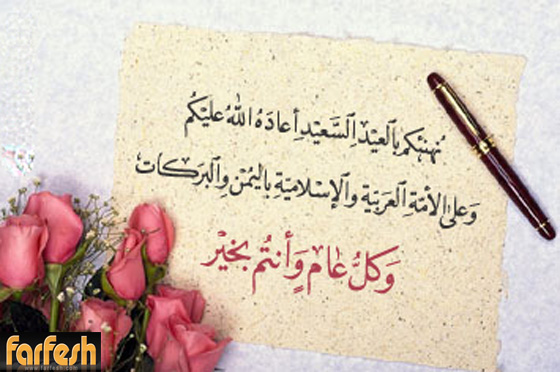 نُهنئكم بالعيد السَّعيْد أعادَهُ اللهُ عليْكُم
وَعلى الأمّة العَربيّة والإسْلاميّة باليُمْن والبَركات
وَكلُّ عَام وَأنتُم بخيْر
farfesh
www.farfesh.com